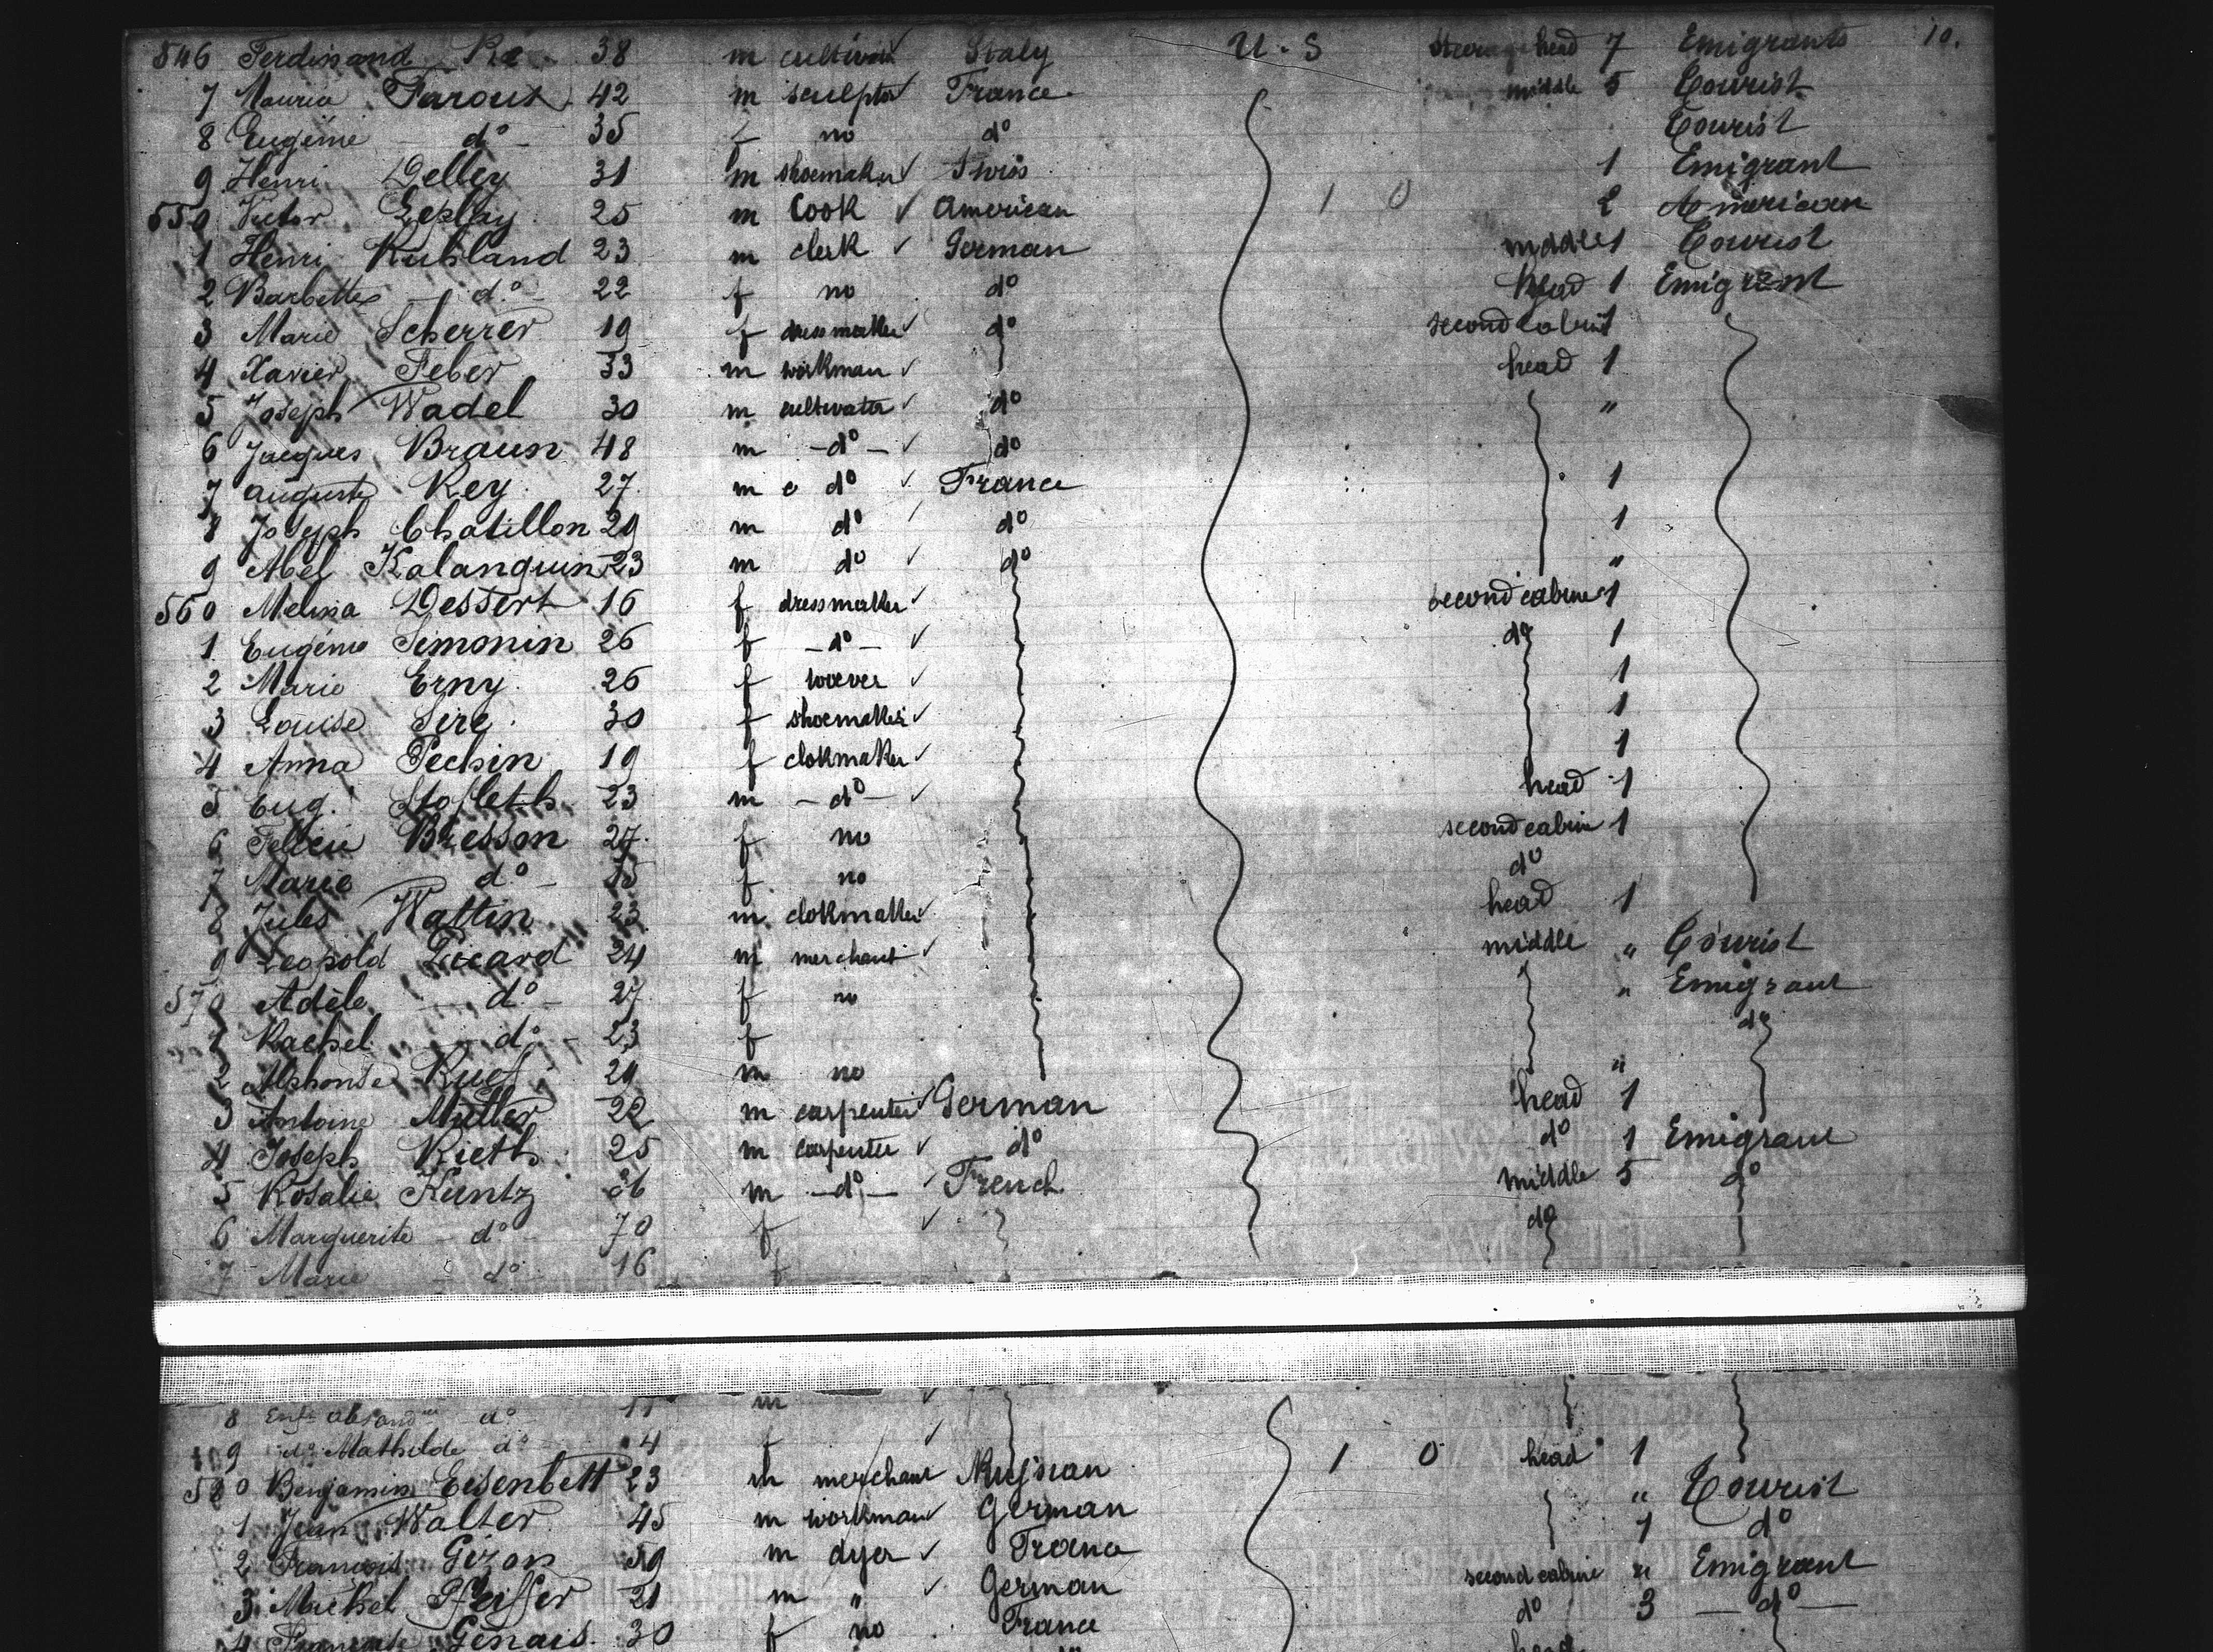 546 Ferdinand Re 38 m cultivat Italy U.S Steerage head 7 Emigrants 10.
7 Maurice Faroux 42 m sculptor France middle 5 Tourist
8 Eugénie do 35 f no do Tourist
9 Henri Delley 31 m shoemaker Swiss 1 Emigrant
550 Victor Leplay 25 m Cook American 1 0 2 American
1 Henri Kuhland 23 m clerk German middle 1 Tourist
2 Barbette do 22 f no do head 1 Emigrant
3 Marie Scherrer 19 f dressmaker do second cabin 1
4 Xavier Feber 33 m workman head 1
5 Joseph Wadel 30 m cultivater do "
6 Jacques Braun 48 m do do
7 Auguste Rey 27 m do France 1
8 Joseph Chatillon 29 m do do 1
9 Abel Kalanquin 23 m do do "
560 Melina Dessert 16 f dressmaker second cabine 1
1 Eugénie Simonin 26 f do do 1
2 Marie Erny 26 f wœver 1
3 Louise Sire 30 f shoemaker 1
4 Anna Pechin 19 f clokmaker 1
5 Eug. Stofleth 23 m do head 1
6 Felicie Bresson 27 f no second cabin 1
7 Marie do f no do
8 Jules Wattin 23 m clokmaker head 1
9 Leopold Picard 24 m merchant middle " Tourist
570 Adèle do 27 f no " Emigrant
1 Rachel do 23 f do
2 Alphonse Ruef 29 m no "
3 Antoine Muller 22 m carpenter German head 1
4 Joseph Rieth 25 m carpenter do do 1 Emigrant
5 Rosalie Kuntz 36 m do French middle 5 do
6 Marguerite do 70 f do
7 Marie do 16 f
8 do m
9 do Mathilde do 4 f 1 0 head 1
580 Benjamin Eisenbett 23 m merchant " Tourist
1 Jean Walter 45 m workman German 1 do
2 Francois Gizon 59 m dyer France second cabine " Emigrant
3 Michel Pfeiffer 21 m " German do 3 do
4 Genais 30 f no France head